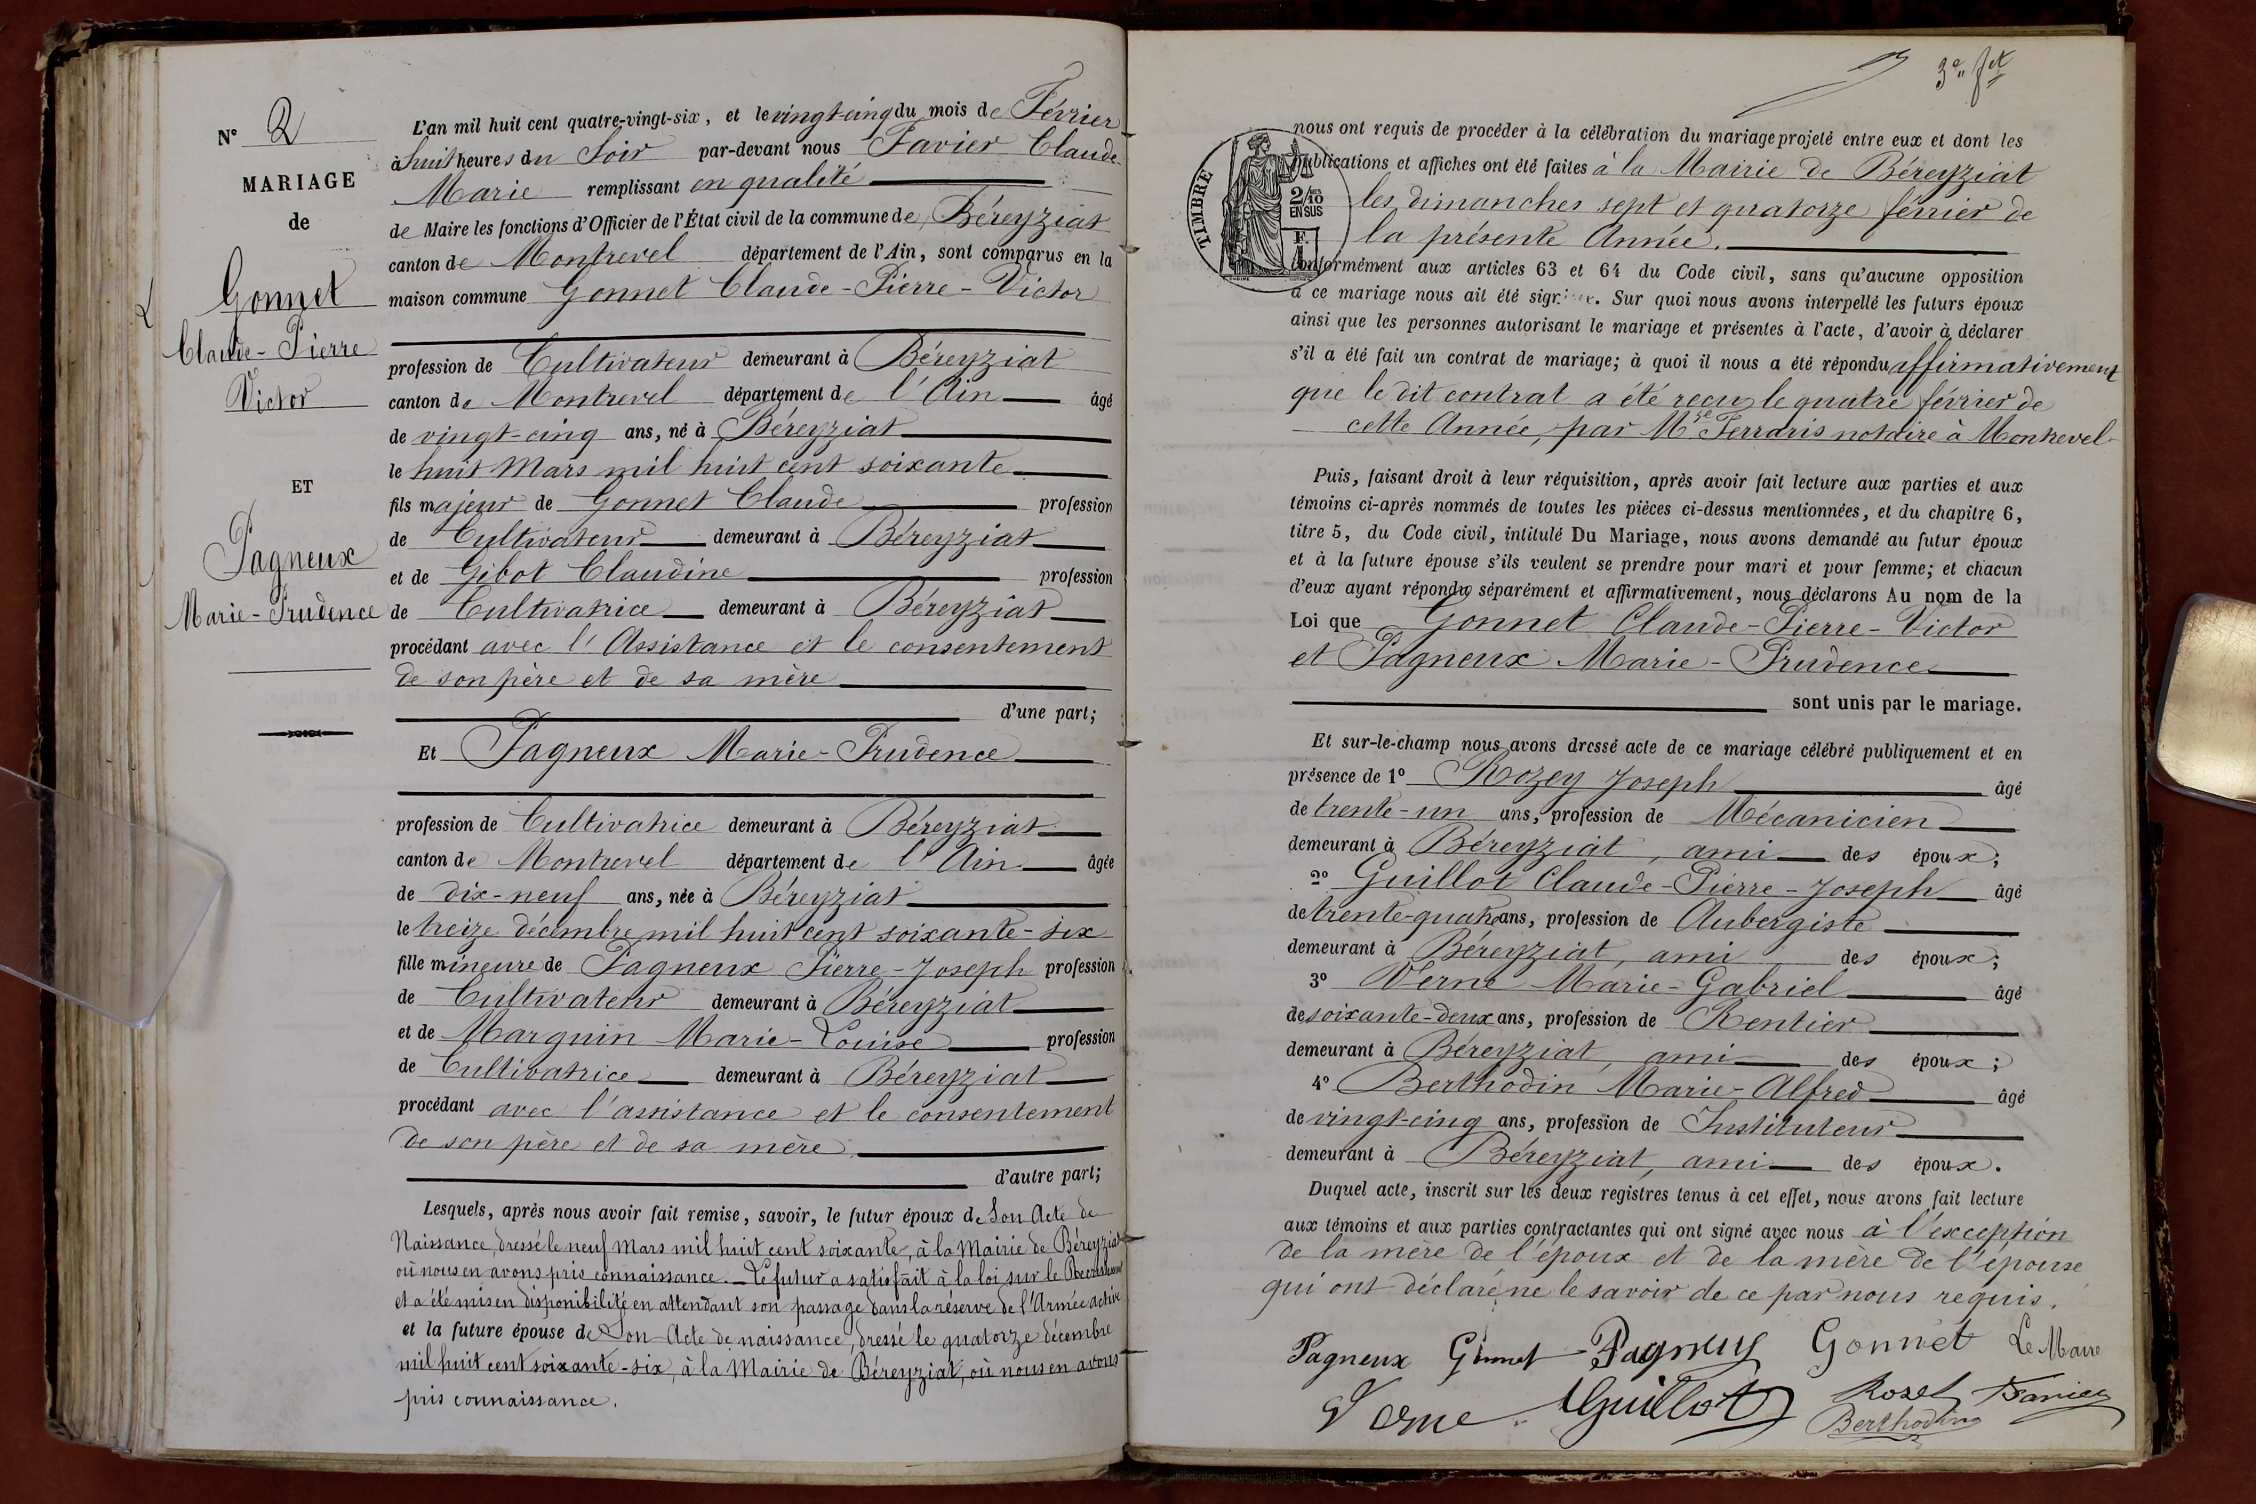 N° 2
MARIAGE
de
Gonnet
Claude-Pierre
Victor
ET
Pagneux
Marie-Prudence
L'an mil huit cent quatre-vingt-six, et le vingt-cinq du mois de Février
à huit heures du Soir par-devant nous Favier Claude
Marie remplissant en qualité
de Maire les fonctions d'Officier de l'État civil de la commune de Béreyziat
canton de Montrevel département de l'Ain, sont comparus en la
maison commune Gonnet Claude-Pierre-Victor
profession de Cultivateur demeurant à Béreyziat
canton de Montrevel département de l'Ain âgé
de vingt-cinq ans, né à Béreyziat
le huit Mars mil huit cent soixante
fils majeur de Gonnet Claude profession
de Cultivateur demeurant à Béreyziat
et de Gibot Claudine profession
de Cultivatrice demeurant à Béreyziat
procédant avec l'Assistance et le consentement
de son père et de sa mère
d'une part;
Et Pagneux Marie-Prudence
profession de Cultivatrice demeurant à Béreyziat
canton de Montrevel département de l'Ain âgée
de dix-neuf ans, née à Béreyziat
le treize décembre mil huit cent soixante-six
fille mineure de Pagneux Pierre-Joseph profession
de Cultivateur demeurant à Béreyziat
et de Marguin Marie-Louise profession
de Cultivatrice demeurant à Béreyziat
procédant avec l'assistance et le consentement
de son père et de sa mère
d'autre part;
Lesquels, après nous avoir fait remise, savoir, le futur époux de Son Acte de
Naissance, dressé le neuf Mars mil huit cent soixante, à la Mairie de Béreyziat
où nous en avons pris connaissance. Le futur a satisfait à la loi sur le Recrutement
et a été mis en disponibilité en attendant son passage dans la réserve de l'Armée active
et la future épouse de Son Acte de naissance, dressé le quatorze décembre
mil huit cent soixante-six, à la Mairie de Béreyziat, où nous en avons
pris connaissance.
3e ft
TIMBRE
2/10
EN SUS
nous ont requis de procéder à la célébration du mariage projeté entre eux et dont les
publications et affiches ont été faites à la Mairie de Béreyziat
les dimanches sept et quatorze février de
la présente Année.
conformément aux articles 63 et 64 du Code civil, sans qu'aucune opposition
à ce mariage nous ait été signifiée. Sur quoi nous avons interpellé les futurs époux
ainsi que les personnes autorisant le mariage et présentes à l'acte, d'avoir à déclarer
s'il a été fait un contrat de mariage; à quoi il nous a été répondu affirmativement
que le dit contrat a été reçu le quatre février de
cette Année, par Me Ferraris notaire à Montrevel
Puis, faisant droit à leur réquisition, après avoir fait lecture aux parties et aux
témoins ci-après nommés de toutes les pièces ci-dessus mentionnées, et du chapitre 6,
titre 5, du Code civil, intitulé Du Mariage, nous avons demandé au futur époux
et à la future épouse s'ils veulent se prendre pour mari et pour femme; et chacun
d'eux ayant répondu séparément et affirmativement, nous déclarons Au nom de la
Loi que Gonnet Claude-Pierre-Victor
et Pagneux Marie-Prudence
sont unis par le mariage.
Et sur-le-champ nous avons dressé acte de ce mariage célébré publiquement et en
présence de 1° Rozey Joseph âgé
de trente-un ans, profession de Mécanicien
demeurant à Béreyziat, ami des époux;
2° Guillot Claude-Pierre-Joseph âgé
de trente-quatre ans, profession de Aubergiste
demeurant à Béreyziat, ami des époux;
3° Verne Marie-Gabriel âgé
de soixante-deux ans, profession de Rentier
demeurant à Béreyziat, ami des époux;
4° Berthodin Marie-Alfred âgé
de vingt-cinq ans, profession de Instituteur
demeurant à Béreyziat, ami des époux.
Duquel acte, inscrit sur les deux registres tenus à cet effet, nous avons fait lecture
aux témoins et aux parties contractantes qui ont signé avec nous à l'exception
de la mère de l'époux et de la mère de l'épouse
qui ont déclaré ne le savoir de ce par nous requis.
Pagneux Gonnet Pagneux Gonnet Le Maire
Verne Guillot Rozet Favier
Berthodin